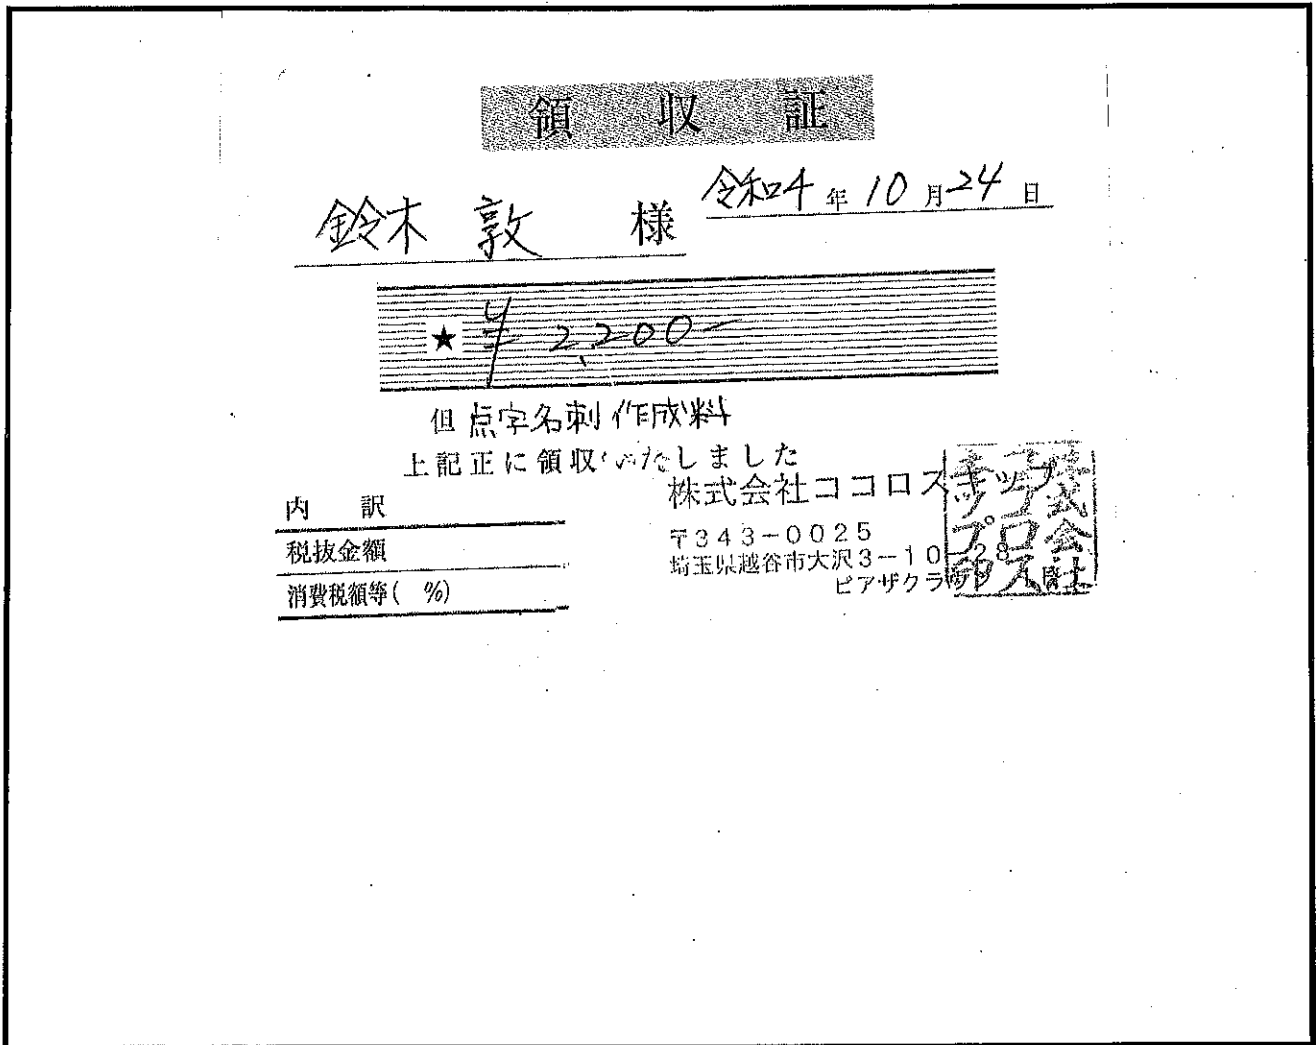 領 収 証
令和4 年 10 月 24 日
鈴木 敦 様
★ ¥ 2,200-
但 点字名刺作成料
上記正に領収いたしました
株式会社ココロスキップ
〒343-0025
埼玉県越谷市大沢3-10-28
ピアザクラ
内 訳
税抜金額
消費税額等( %)
株式会社
ココロス
キップ印